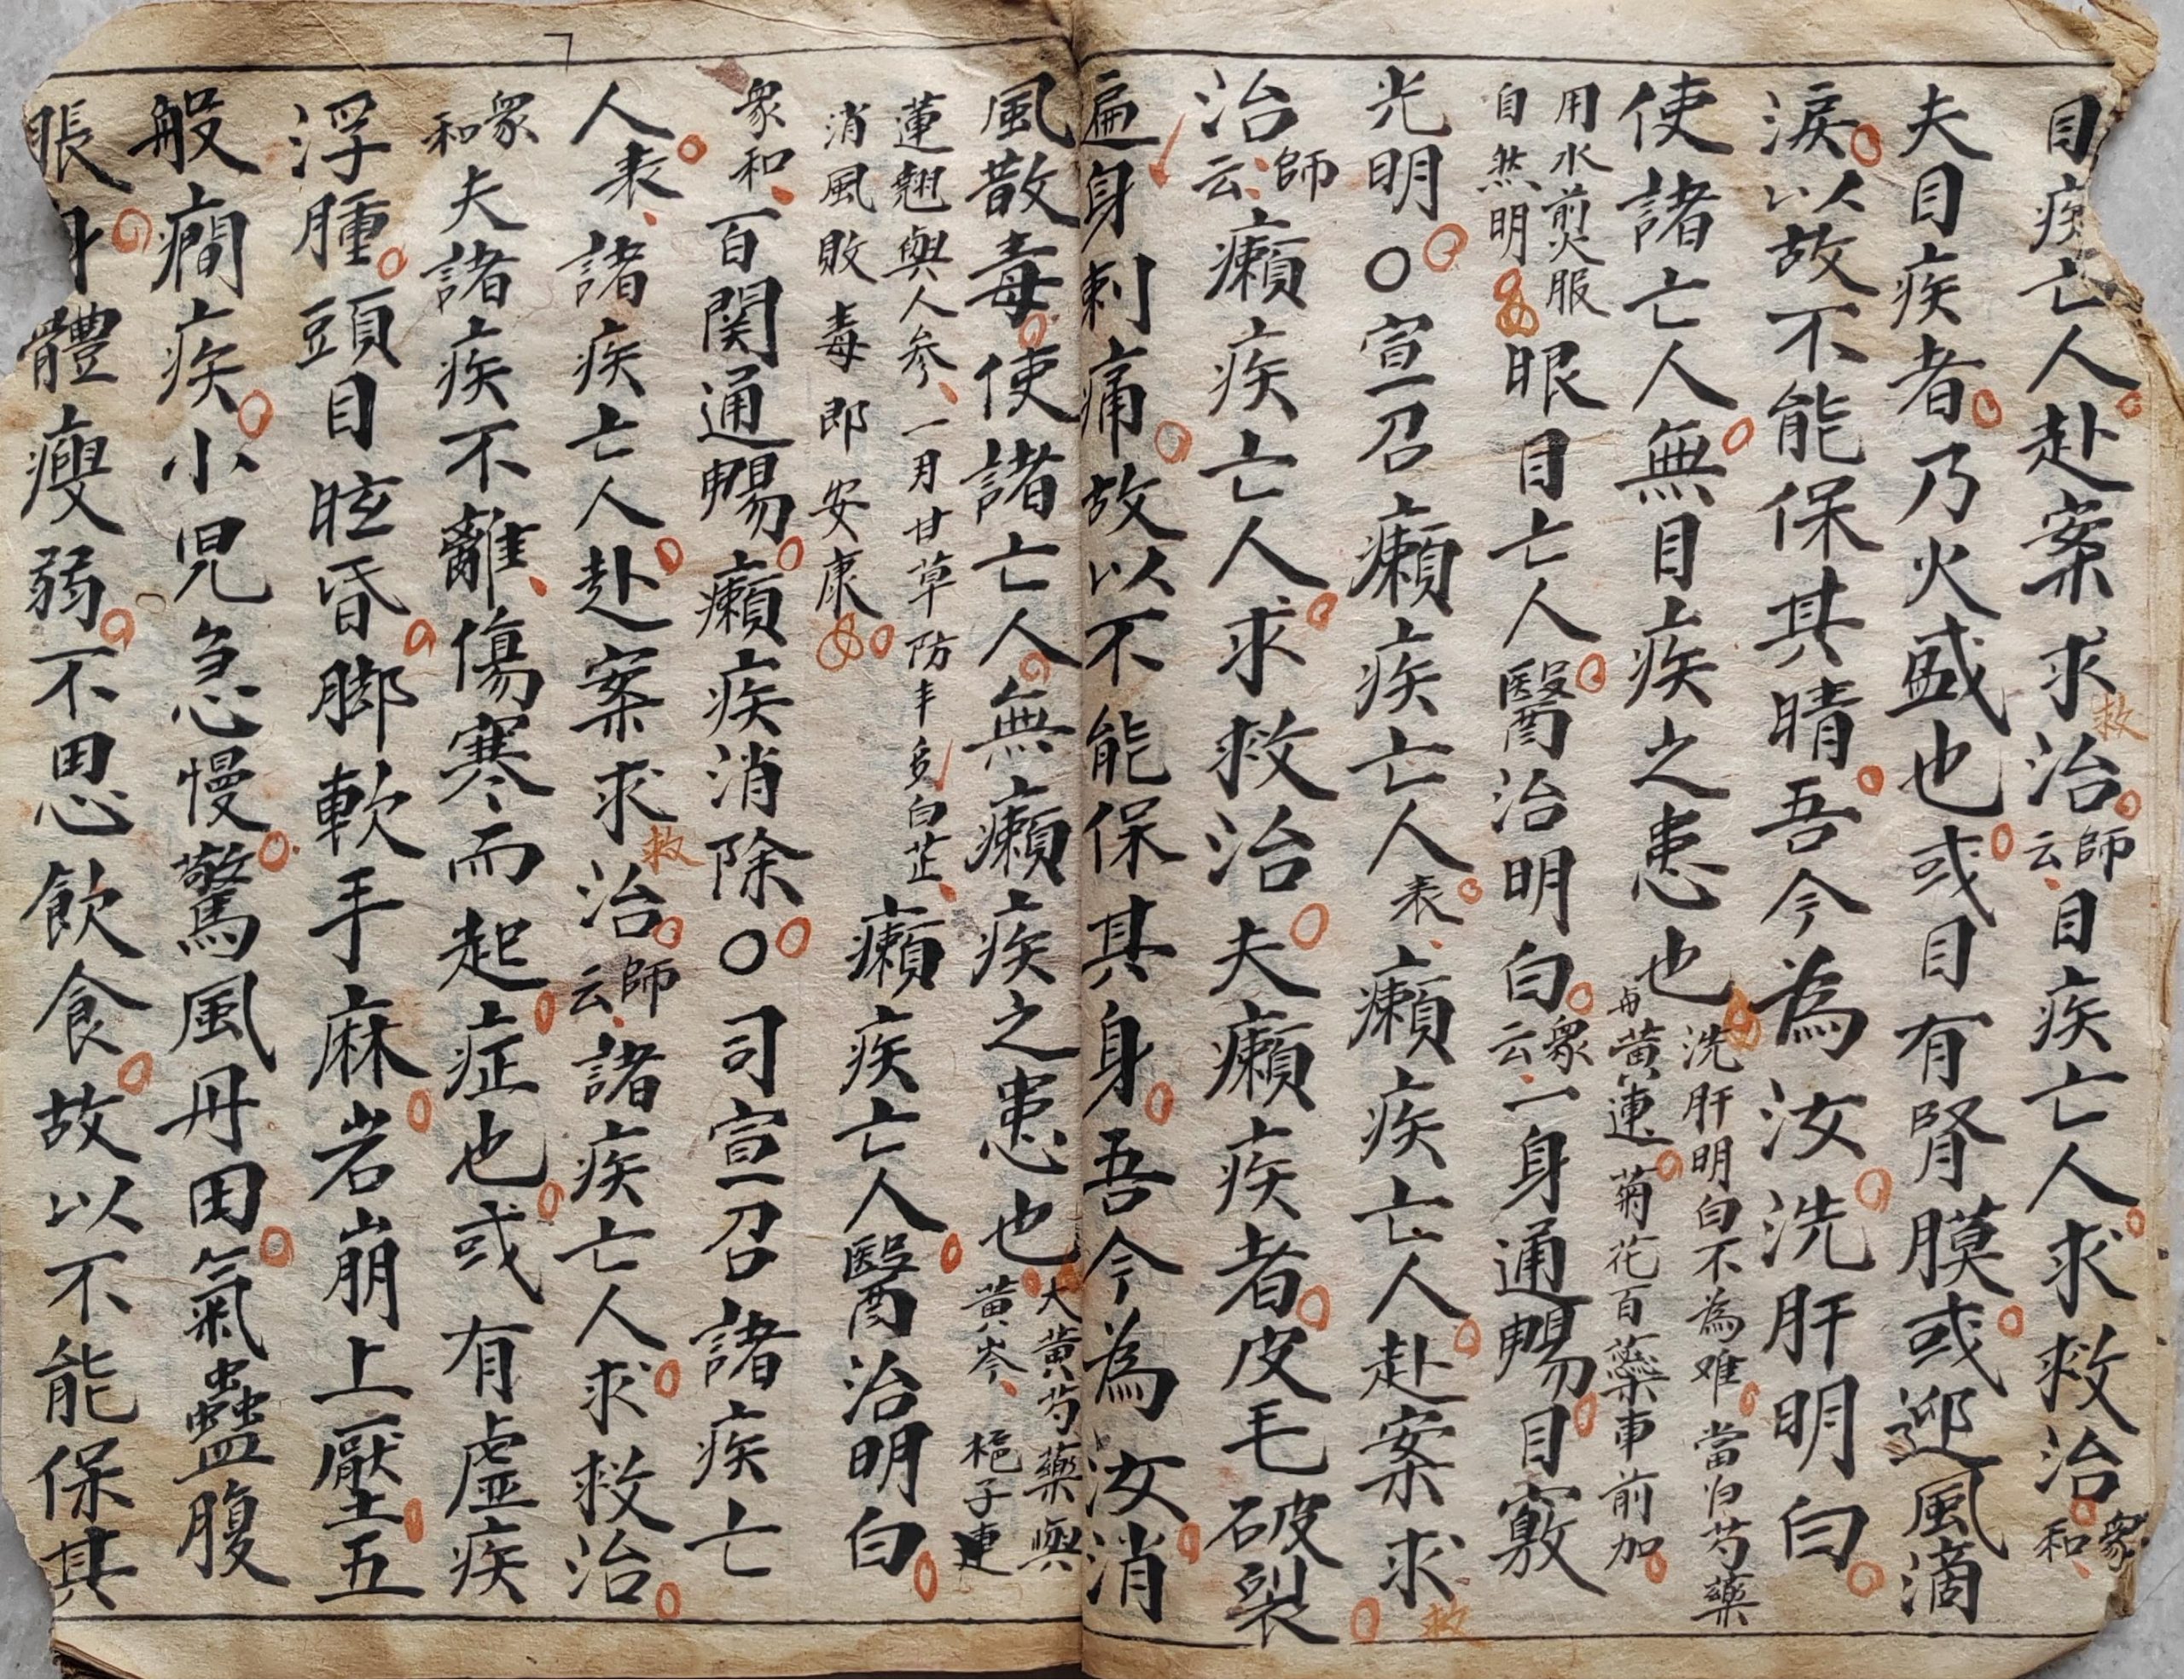 目疾亡人赴案求救治師云目疾亡人求救治眾和
夫目疾者乃火盛也或目有腎膜或迎風滴
淚以故不能保其睛吾今為汝洗肝明白
使諸亡人無目疾之患也
洗肝明白不為难當归芍藥
每黃連菊花百藥車前加
用水煎服
自然明
眼目亡人醫治明白眾云一身通暢目竅
光明〇宣召癩疾亡人表癩疾亡人赴案求救
治師云癩疾亡人求救治夫癩疾者皮毛破裂
遍身刺痛故以不能保其身吾今為汝消
風散毒使諸亡人無癩疾之患也
大黃芍藥與
黃岑梔子連
蓮翹與人参一月甘草防丰多白芷
消風敗毒即安康
癩疾亡人醫治明白
眾和百関通暢癩疾消除〇司宣召諸疾亡
人表諸疾亡人赴案求救治師云諸疾亡人求救治
眾和夫諸疾不離傷寒而起症也或有虛疾
浮腫頭目眩昏脚軟手麻岩崩上壓五
般癇疾小児急慢驚風丹田氣蠱腹
脹身體瘦弱不思飲食故以不能保其